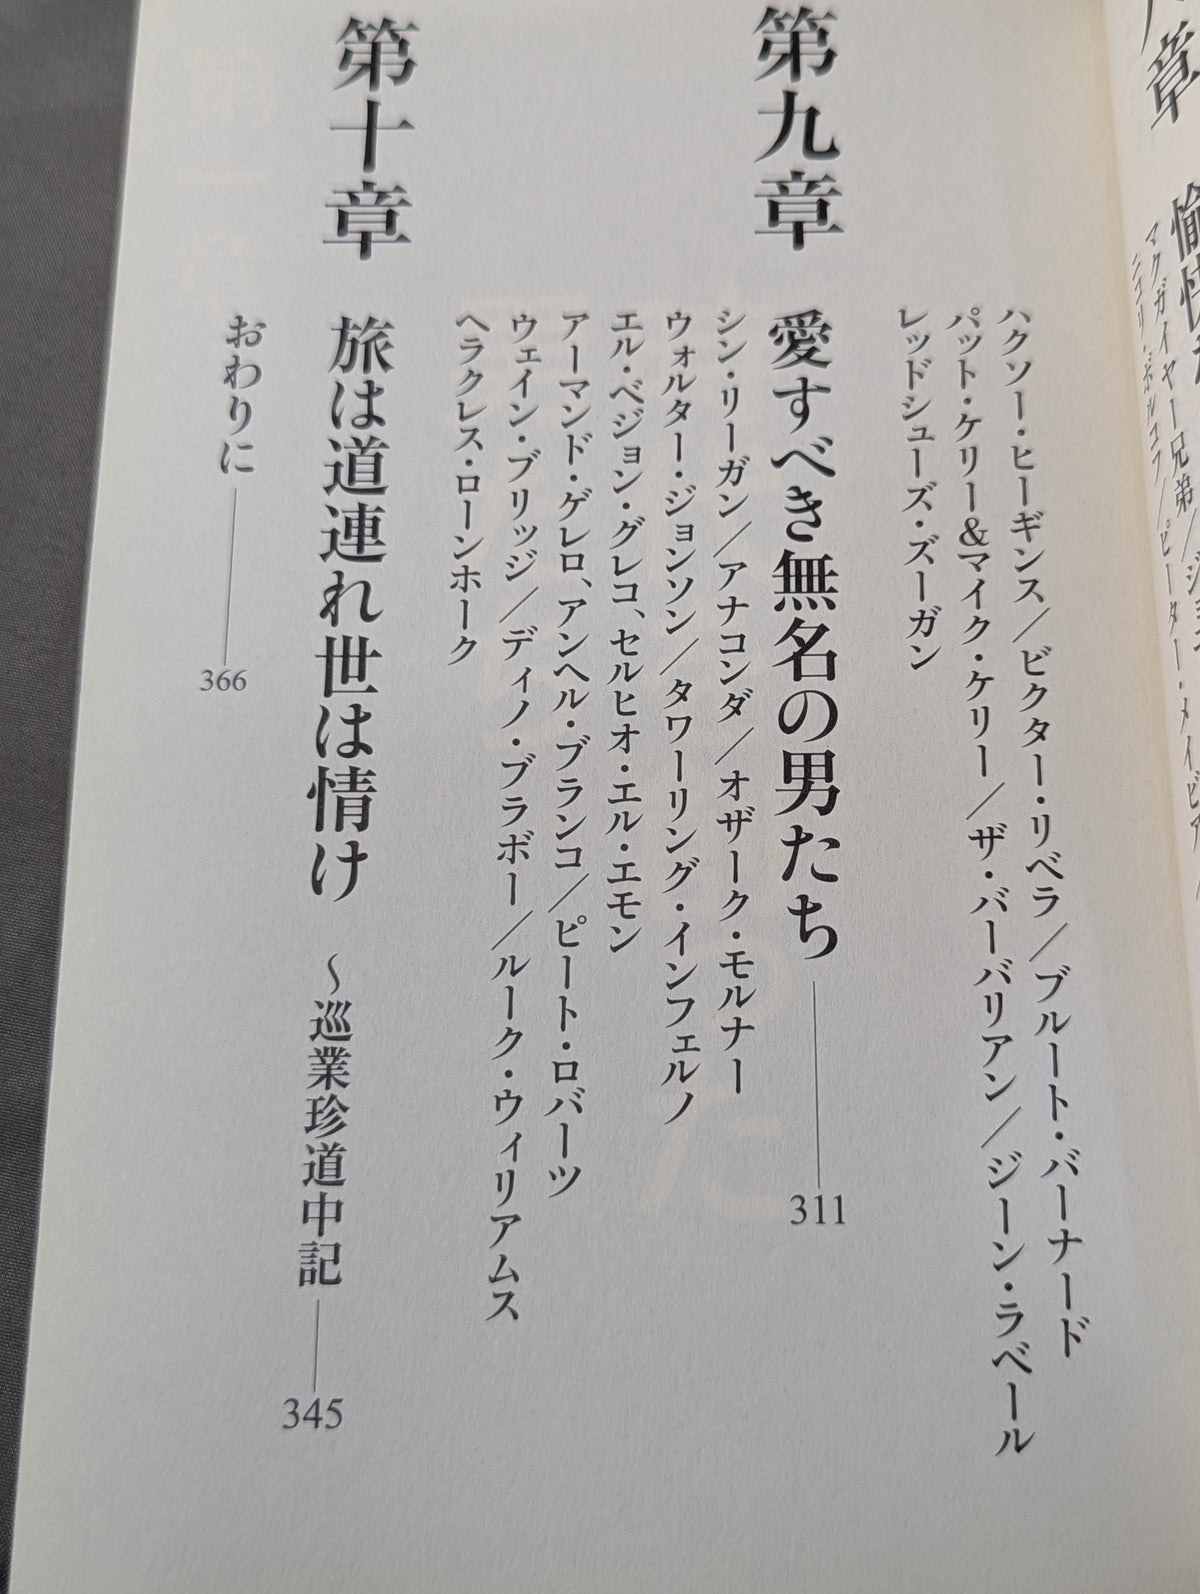 章
愉快な
マクガイヤー兄弟／ジョニ
ニコリ・ボルコフ／ピーター・メイビア
ハクソー・ヒーギンス／ビクター・リベラ／ブルート・バーナード
パット・ケリー&マイク・ケリー／ザ・バーバリアン／ジーン・ラベール
レッドシューズ・ズーガン
第九章 愛すべき無名の男たち 311
シン・リーガン／アナコンダ／オザーク・モルナー
ウォルター・ジョンソン／タワーリング・インフェルノ
エル・ベジョン・グレコ、セルヒオ・エル・エモン
アーマンド・ゲレロ、アンヘル・ブランコ／ピート・ロバーツ
ウェイン・ブリッジ／ディノ・ブラボー／ルーク・ウィリアムス
ヘラクレス・ローンホーク
第十章 旅は道連れ世は情け ～巡業珍道中記 345
おわりに 366